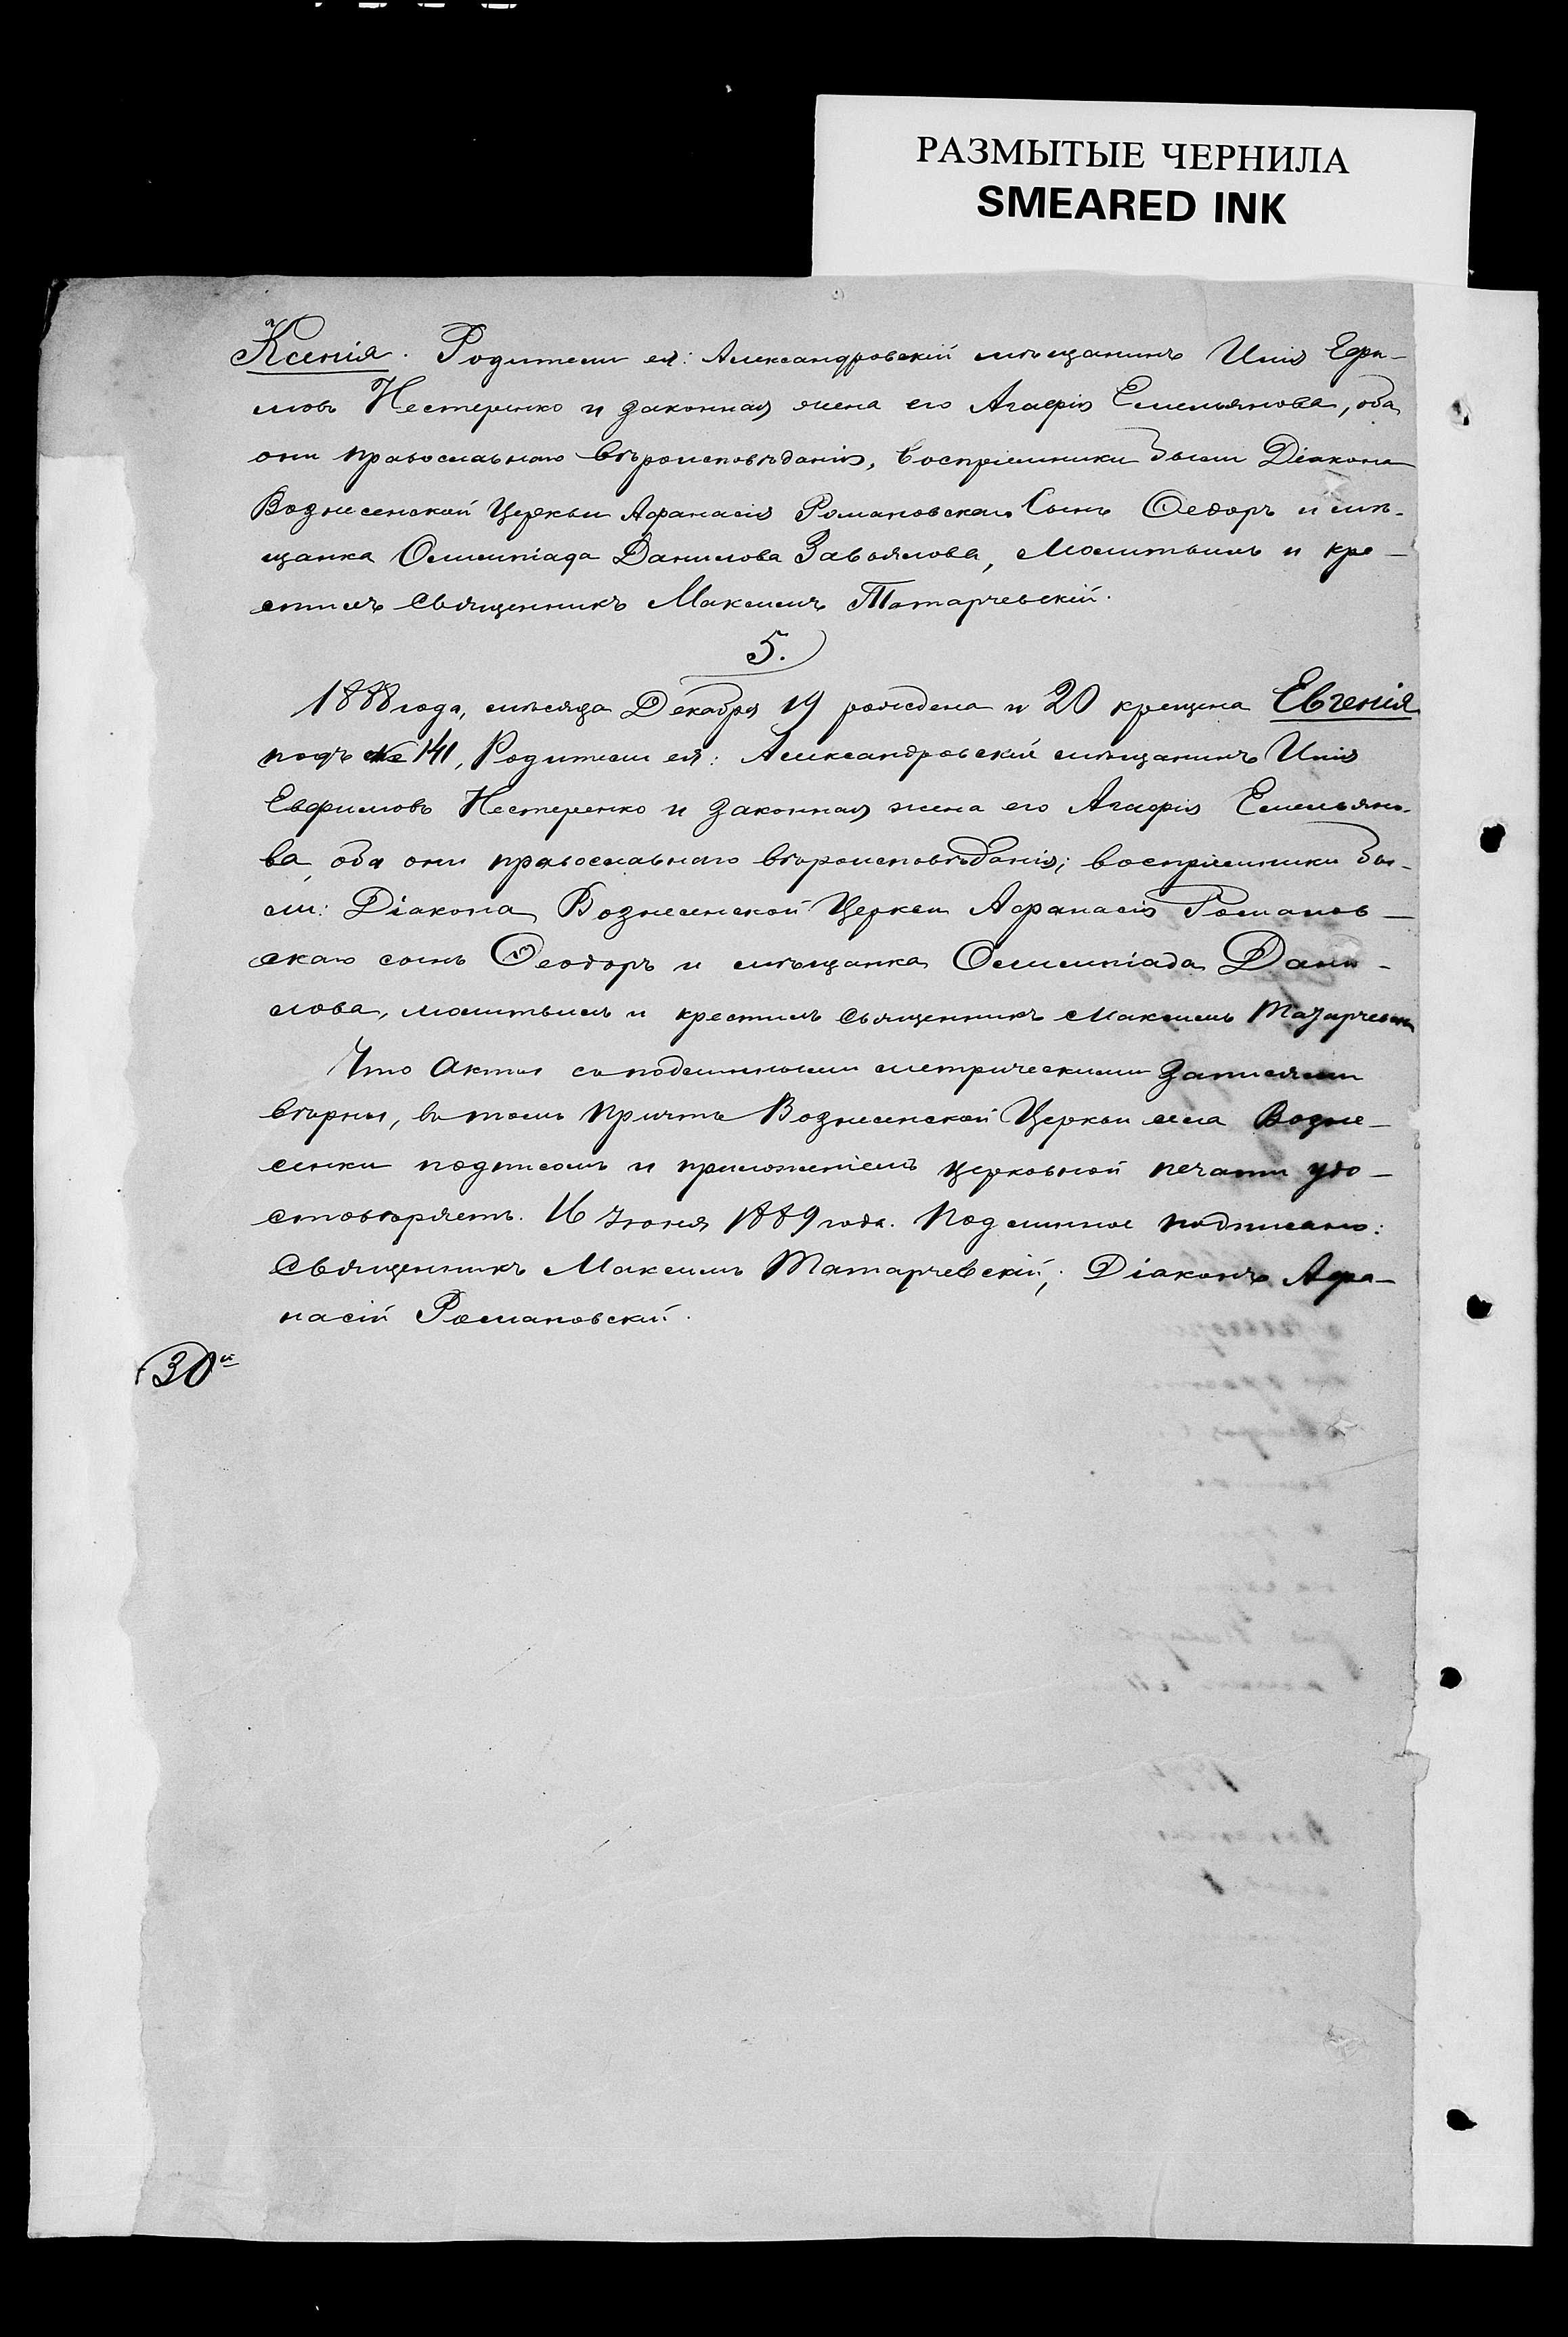 РАЗМЫТЫЕ ЧЕРНИЛА
SMEARED INK
Ксенія. Родители ея: Александровскій мѣщанинъ Илія Ефи-
мовъ Нестеренко и законная жена его Агафія Емельянова, оба
они православнаго вѣроисповѣданія, воспріемники были Діакона
Вознесенской Церкви Афанасія Романовскаго Сынъ Ѳедоръ и мѣ-
щанка Олимпіада Данилова Завьялова, Молитвилъ и кре-
стилъ Священникъ Максимъ Татарчевскій.
5.
1888 года, мѣсяца Декабря 19 рождена и 20 крещена Евгенія
подъ № 141, Родители ея: Александровскій мѣщанинъ Илія
Евфимовъ Нестеренко и законная жена его Агафія Емельяно-
ва, оба они православнаго вѣроисповѣданія; воспріемники бы-
ли: Діакона Вознесенской Церкви Афанасія Романов-
скаго сынъ Ѳеодоръ и мѣщанка Олимпіада Дани-
лова, молитвилъ и крестилъ священникъ Максимъ
Что акты съ подлинными метрическими записями
вѣрны, въ томъ Причтъ Вознесенской Церкви села Возне-
сенки подписомъ и приложеніемъ церковной печати удо-
стовѣряетъ. 16 Іюня 1889 года. Подлинное подписано:
Священникъ Максимъ Татарчевскій, Діаконъ Афа-
насій Романовскій.